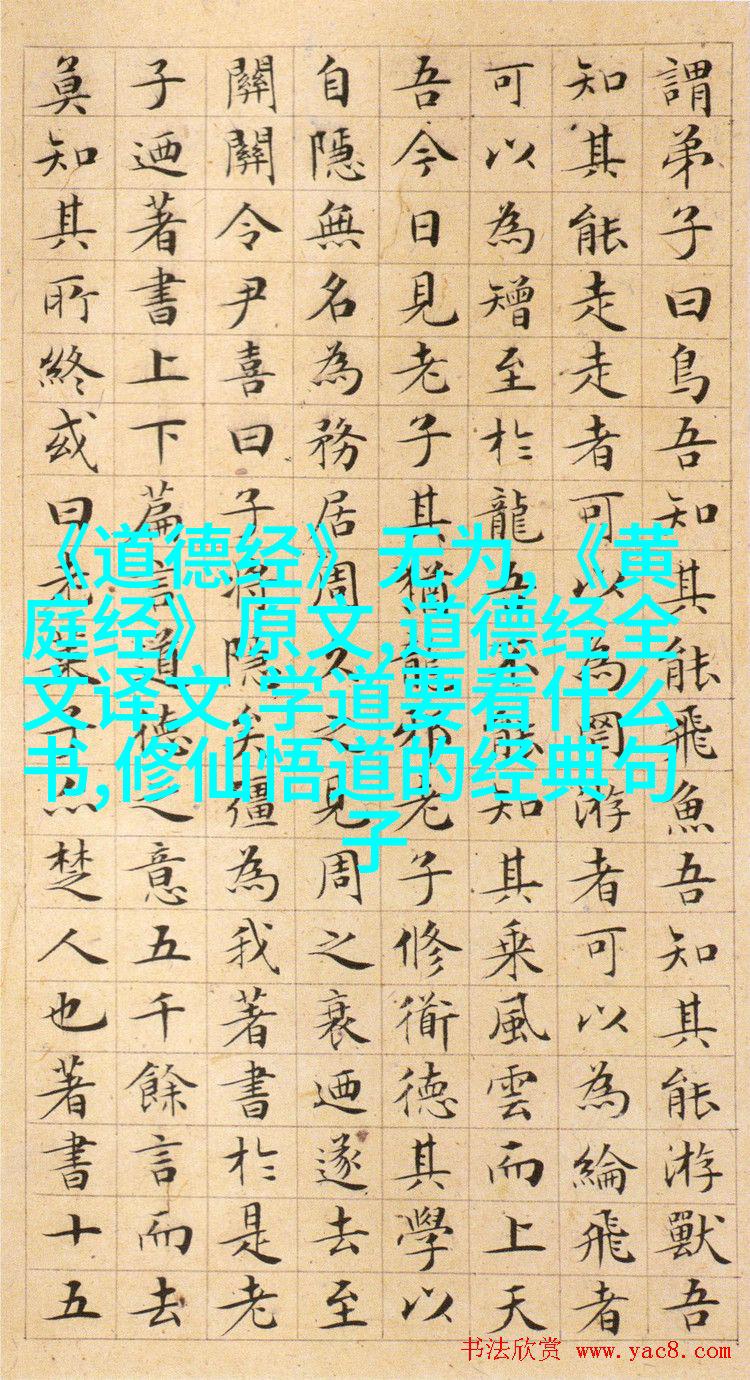 謂弟子曰鳥吾知其能飛魚吾知其能游獸吾
知其能走走者可以為罔游者可以為綸飛者
可以為矰至於龍吾不能知其乘風雲而上天
吾今日見老子其猶龍邪老子修衜德其學以
自隱無名為務居周久之見周之衰迺遂去至
關關令尹喜曰子將隱矣彊為我著書於是老
子迺著書上下篇言道德之意五千餘言而去
莫知其所終或曰老萊子亦楚人也著書十五
《道德经》无为,《黄
庭经》原文,道德经全
文译文,学道要看什么
书,修仙悟道的经典句
子
书法欣赏 www.yac8.com